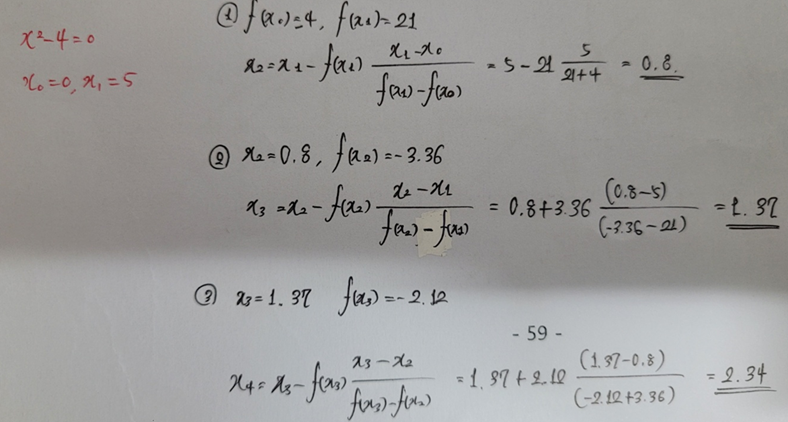 x²-4=0
x₀=0, x₁=5
① f(x₀)=4, f(x₁)=21
x₂=x₁-f(x₁) (x₁-x₀)/(f(x₁)-f(x₀)) = 5-21 5/(21+4) = 0.8.
② x₂=0.8, f(x₂)=-3.36
x₃=x₂-f(x₂) (x₂-x₁)/(f(x₂)-f(x₁)) = 0.8+3.36 (0.8-5)/(-3.36-21) = 1.37
③ x₃=1.37 f(x₃)=-2.12
- 59 -
x₄=x₃-f(x₃) (x₃-x₂)/(f(x₃)-f(x₂)) = 1.37+2.12 (1.37-0.8)/(-2.12+3.36) = 2.34